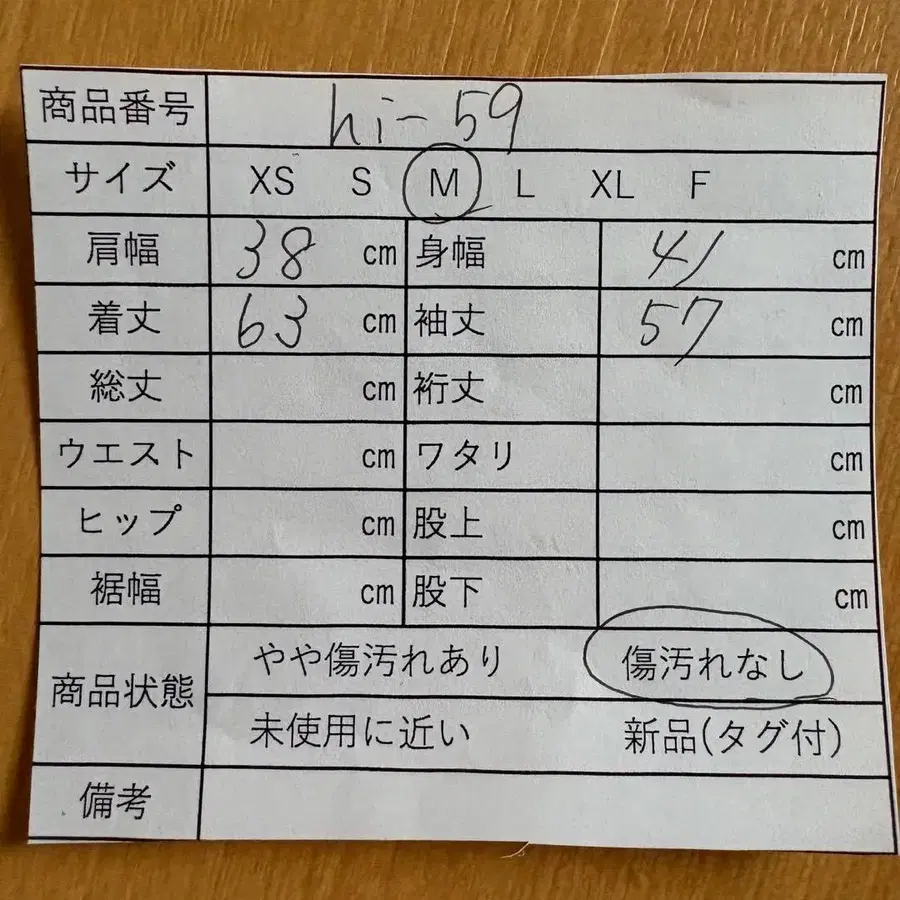 商品番号 hi-59
サイズ XS S M L XL F
肩幅 38 cm 身幅 41 cm
着丈 63 cm 袖丈 57 cm
総丈 cm 裄丈 cm
ウエスト cm ワタリ cm
ヒップ cm 股上 cm
裾幅 cm 股下 cm
商品状態 やや傷汚れあり 傷汚れなし
未使用に近い 新品(タグ付)
備考